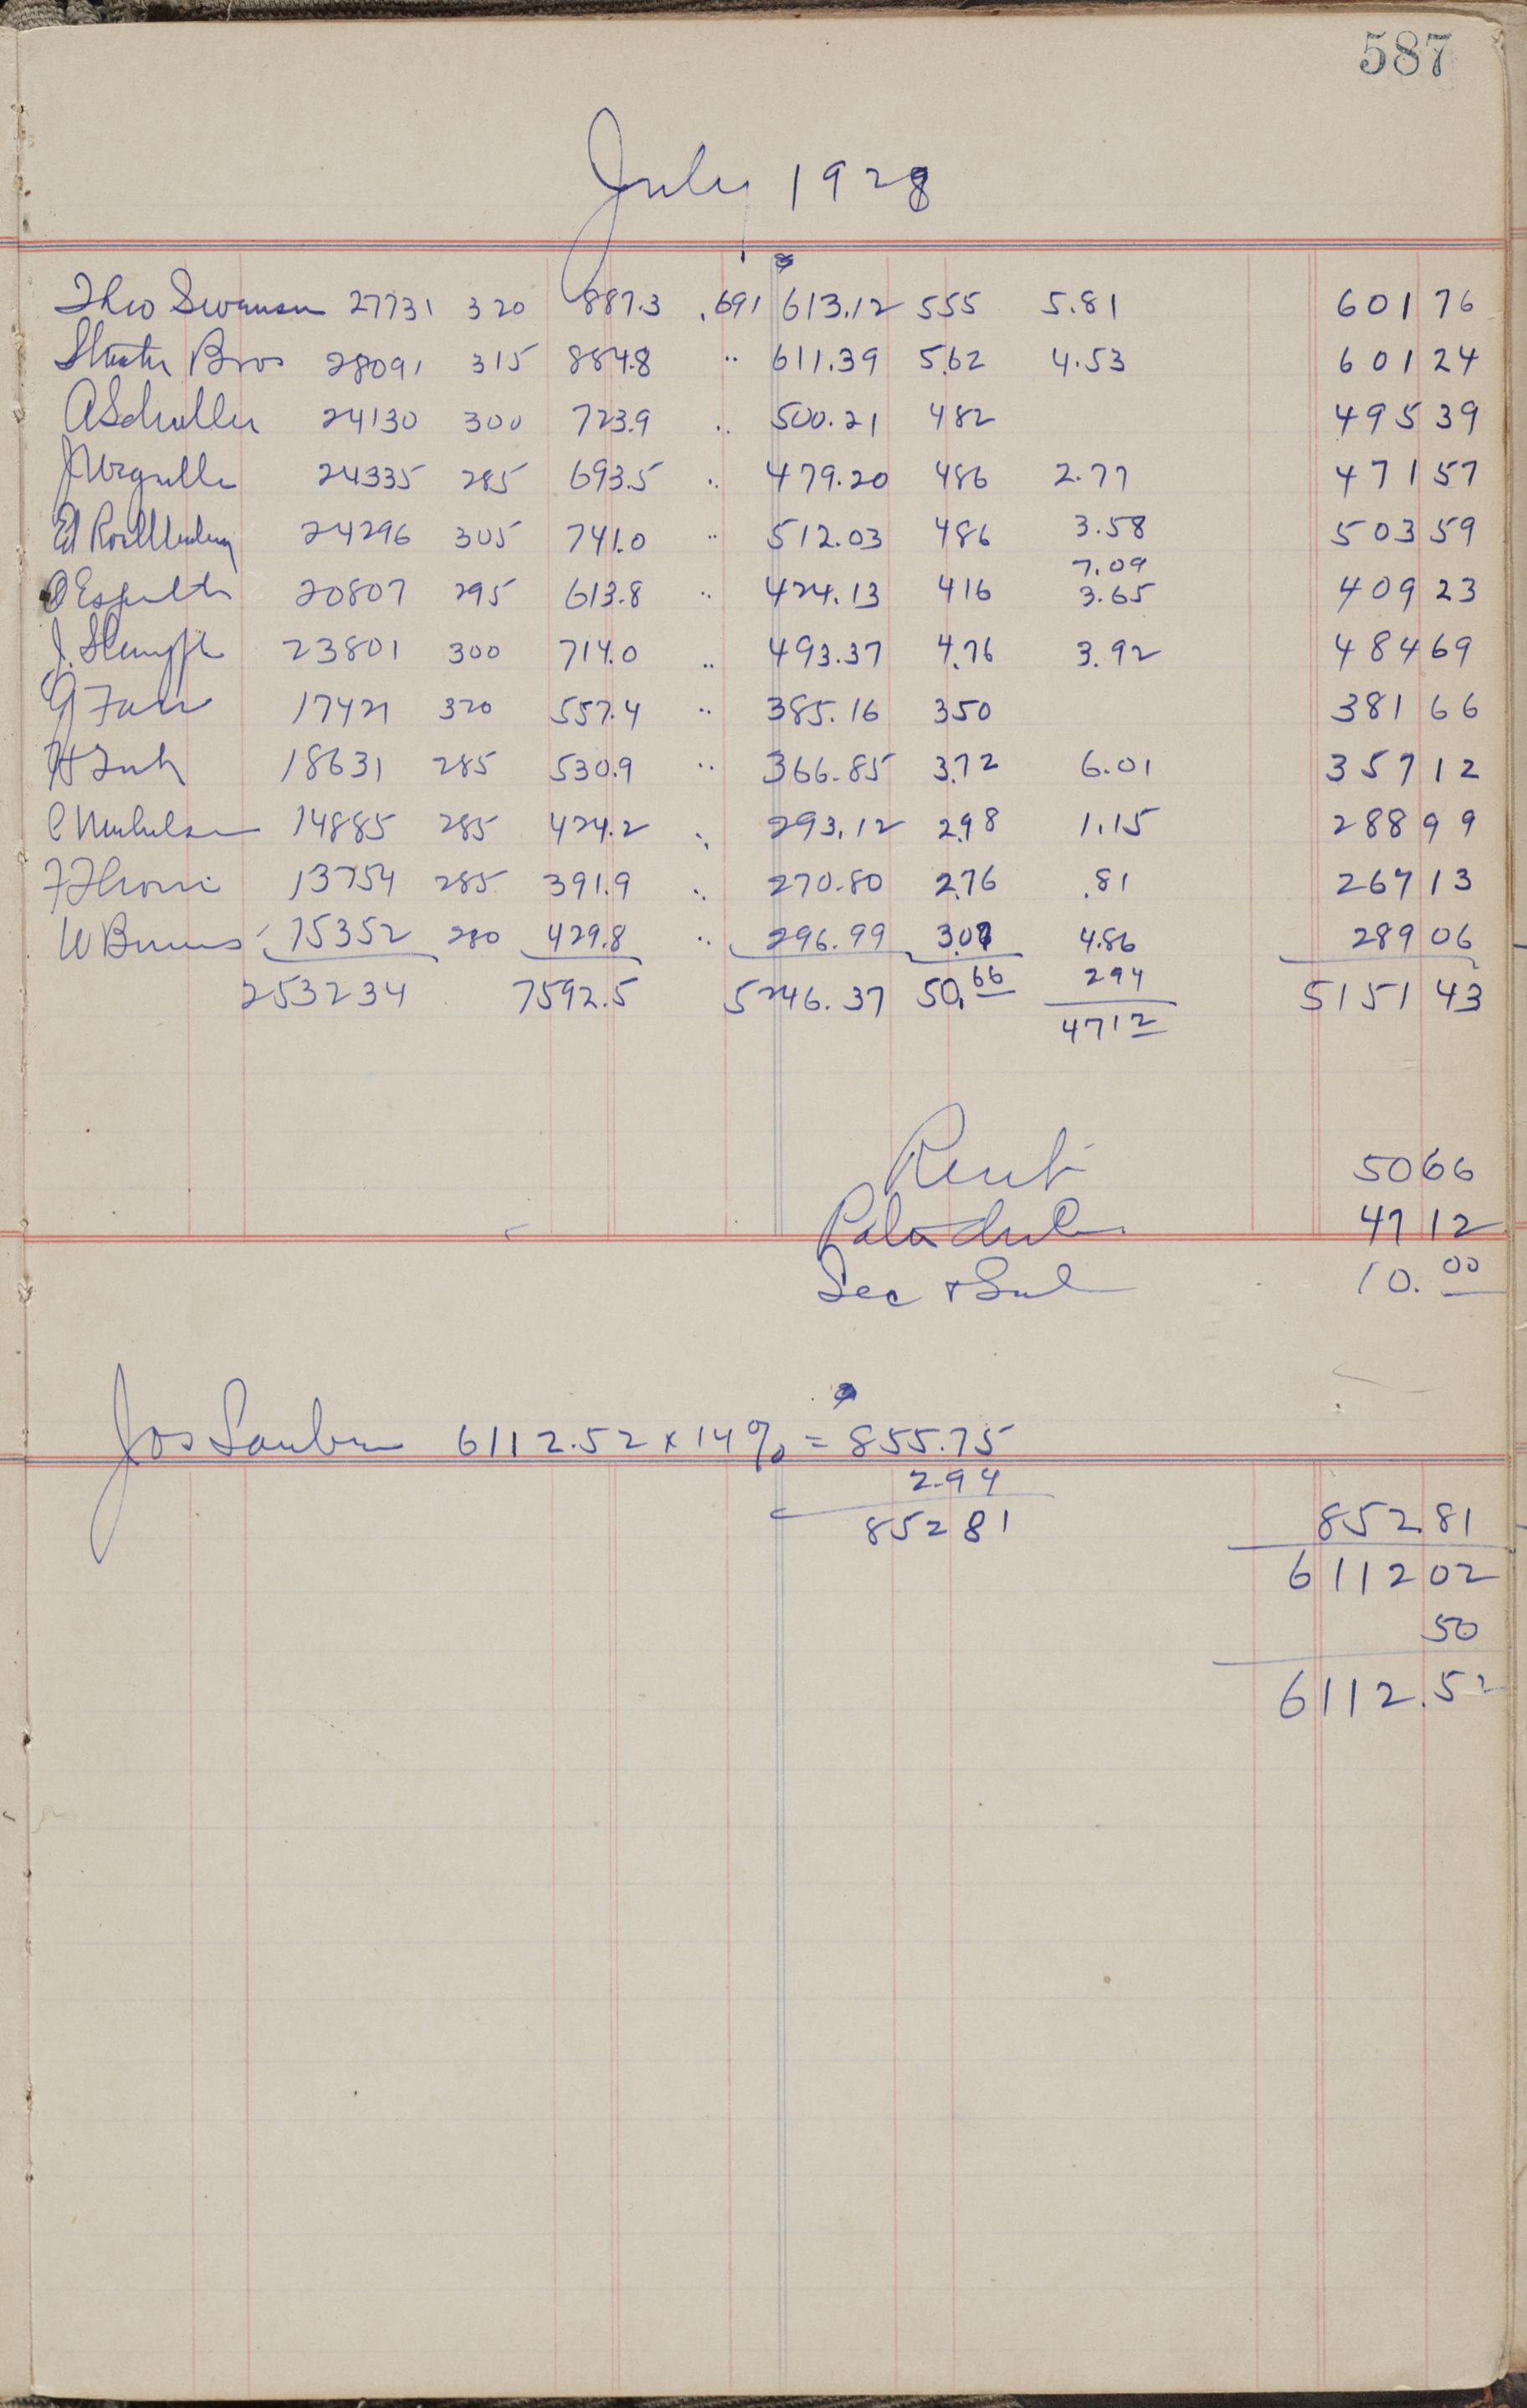 587
July 1928
Theo Swanson 27731 320 887.3 .691 613.12 555 5.81 601 76
Bros 28091 315 884.8 " 611.39 5.62 4.53 601 24
A Schuller 24130 300 723.9 " 500.21 482 495 39
24335 285 693.5 " 479.20 486 2.77 471 57
Ed 24296 305 741.0 " 512.03 486 3.58 503 59
7.09
20807 295 613.8 " 424.13 416 3.65 409 23
J. 23801 300 714.0 " 493.37 4.76 3.92 484 69
17421 320 557.4 " 385.16 350 381 66
H 18631 285 530.9 " 366.85 3.72 6.01 357 12
C 14885 285 424.2 " 293.12 2.98 1.15 288 99
F 13754 285 391.9 " 270.80 2.76 .81 267 13
W Burns 15352 280 429.8 " 296.99 3.07 4.86 289 06
253234 7592.5 5246.37 50.66 294 5151 43
4712
Rent 50 66
47 12
Sec + 10.00
Jos 6112.52 x 14% = 855.75
2.94
852 81 852 81
6112 02
50
6112.52